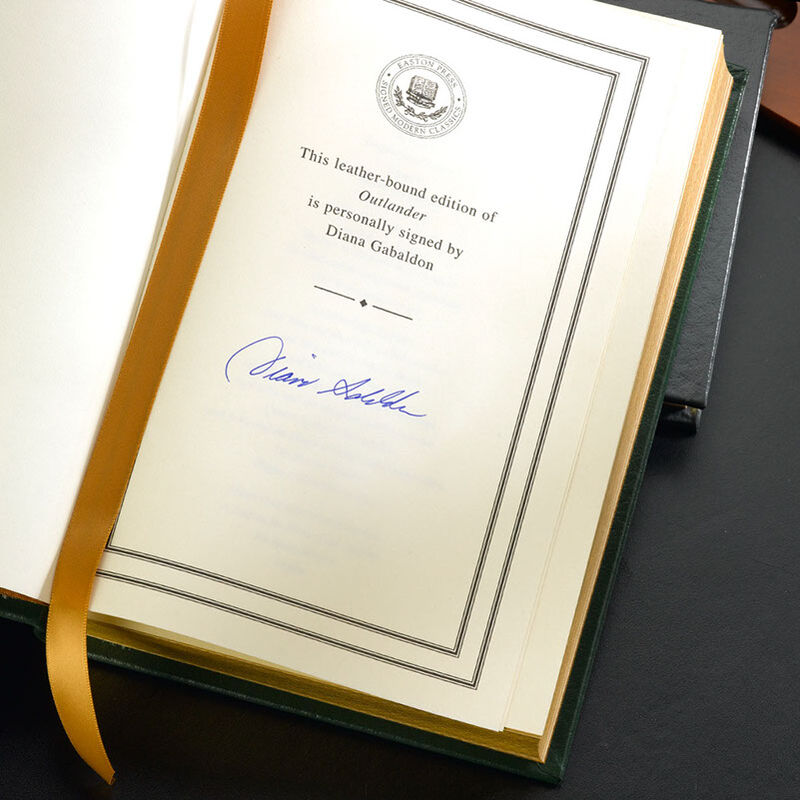 EASTON PRESS
SIGNED MODERN CLASSICS
This leather-bound edition of
Outlander
is personally signed by
Diana Gabaldon
Diana Gabaldon